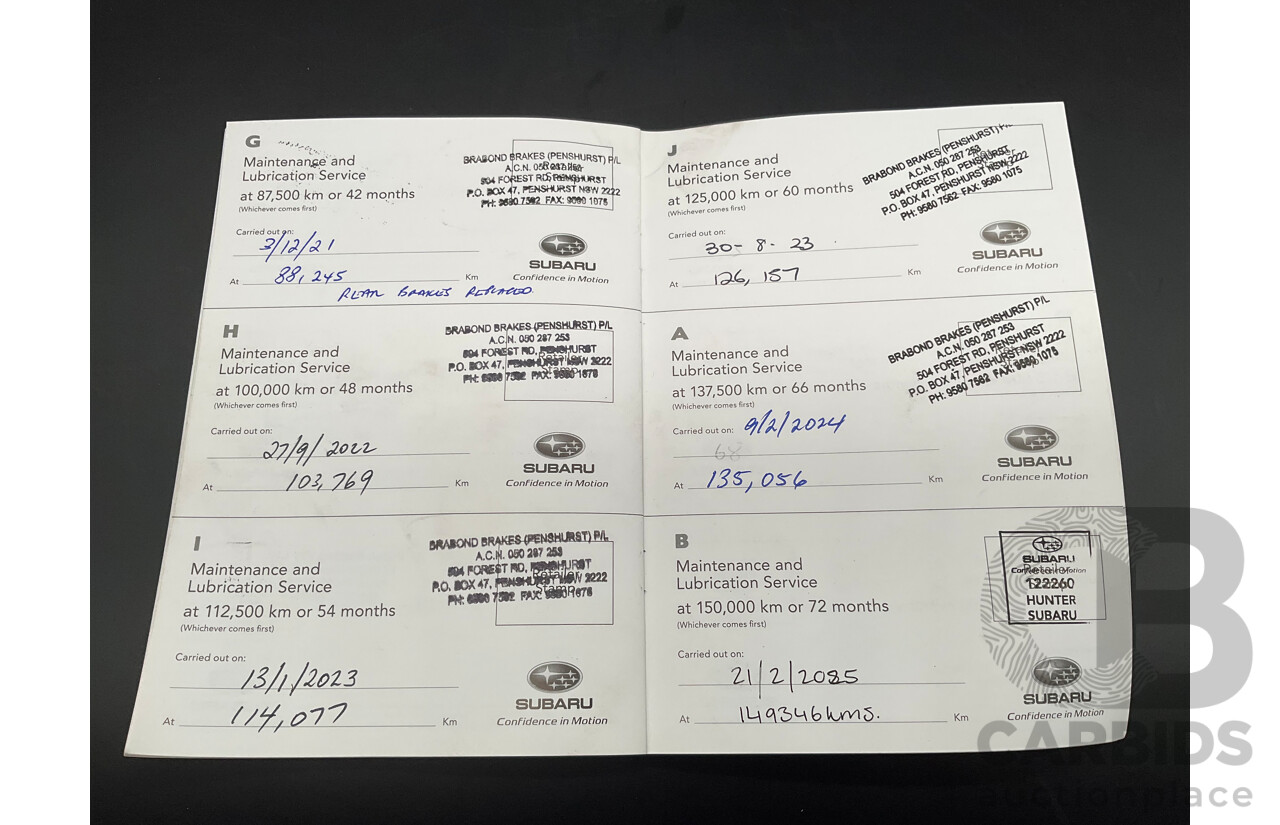 G
Maintenance and
Lubrication Service
at 87,500 km or 42 months
(Whichever comes first)
BRABOND BRAKES (PENSHURST) P/L
A.C.N. 050 287 253
504 FOREST RD, PENSHURST
P.O. BOX 47, PENSHURST NSW 2222
PH: 9580 7562 FAX: 9580 1075
Carried out on:
3/12/21
At 88,245 Km
REAR BRAKES REPLACED
SUBARU
Confidence in Motion
H
Maintenance and
Lubrication Service
at 100,000 km or 48 months
(Whichever comes first)
BRABOND BRAKES (PENSHURST) P/L
A.C.N. 050 287 253
504 FOREST RD, PENSHURST
P.O. BOX 47, PENSHURST NSW 2222
PH: 9580 7562 FAX: 9580 1075
Retailer
Stamp
Carried out on:
27/9/2022
At 103,769 Km
SUBARU
Confidence in Motion
I
Maintenance and
Lubrication Service
at 112,500 km or 54 months
(Whichever comes first)
BRABOND BRAKES (PENSHURST) P/L
A.C.N. 050 287 253
504 FOREST RD, PENSHURST
P.O. BOX 47, PENSHURST NSW 2222
PH: 9580 7562 FAX: 9580 1075
Retailer
Stamp
Carried out on:
13/1/2023
At 114,077 Km
SUBARU
Confidence in Motion
J
Maintenance and
Lubrication Service
at 125,000 km or 60 months
(Whichever comes first)
BRABOND BRAKES (PENSHURST) P/L
A.C.N. 050 287 253
504 FOREST RD, PENSHURST
P.O. BOX 47, PENSHURST NSW 2222
PH: 9580 7562 FAX: 9580 1075
Carried out on:
30-8-23
At 126,157 Km
SUBARU
Confidence in Motion
A
Maintenance and
Lubrication Service
at 137,500 km or 66 months
(Whichever comes first)
BRABOND BRAKES (PENSHURST) P/L
A.C.N. 050 287 253
504 FOREST RD, PENSHURST
P.O. BOX 47, PENSHURST NSW 2222
PH: 9580 7562 FAX: 9580 1075
Carried out on: 9/2/2024
68
At 135,056 Km
SUBARU
Confidence in Motion
B
Maintenance and
Lubrication Service
at 150,000 km or 72 months
(Whichever comes first)
SUBARU
Confidence in Motion
Retailer
122260
HUNTER
SUBARU
Carried out on:
21/2/2025
At 149346kms. Km
SUBARU
Confidence in Motion
CARBIDS
auctionplace